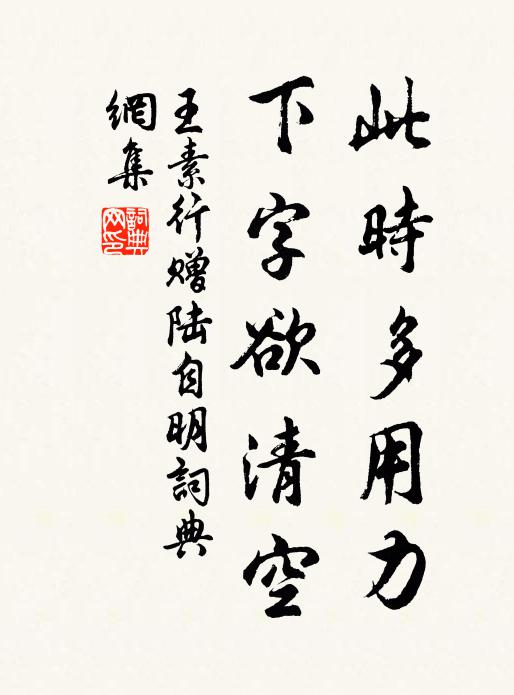 此時多用力
下字欲清空
王素行贈陆自明詞典
網集
詞典
网印